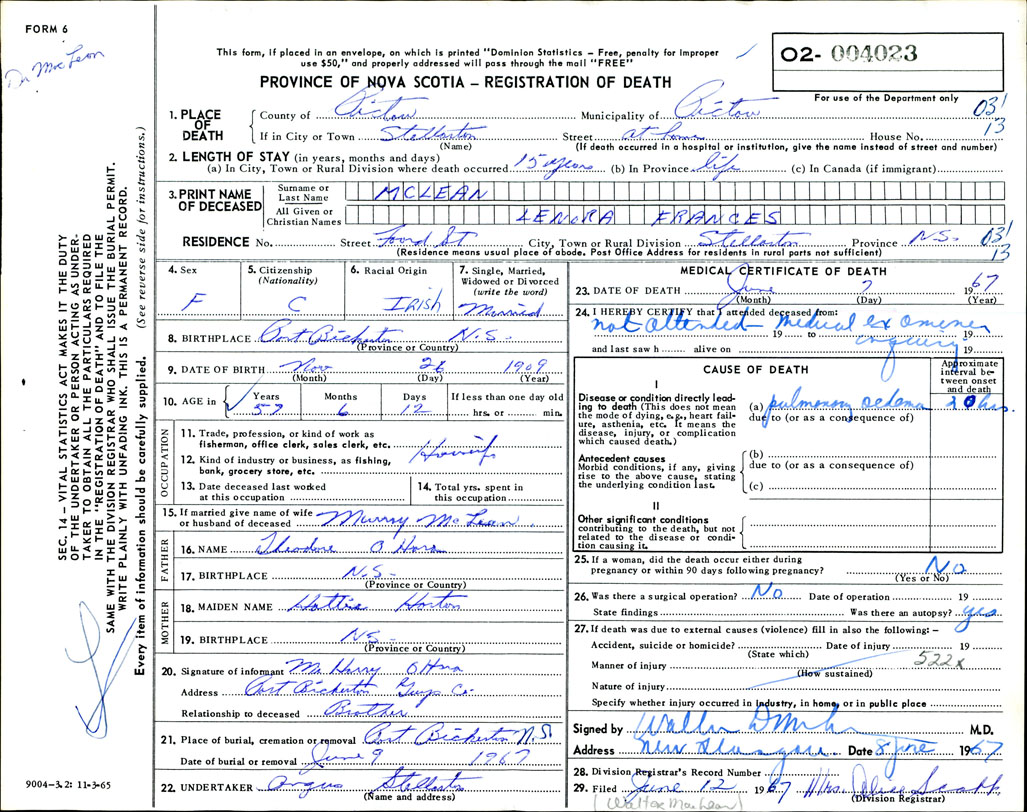 FORM 6
Dr McLean
This form, if placed in an envelope, on which is printed "Dominion Statistics – Free, penalty for improper
use $50," and properly addressed will pass through the mail "FREE"
O2- 004023
PROVINCE OF NOVA SCOTIA – REGISTRATION OF DEATH
For use of the Department only
031
13
1. PLACE OF DEATH
County of Pictou Municipality of Pictou
If in City or Town Stellarton Street at home House No.
(Name) (If death occurred in a hospital or institution, give the name instead of street and number)
2. LENGTH OF STAY (in years, months and days)
(a) In City, Town or Rural Division where death occurred 15 years (b) In Province life (c) In Canada (if immigrant)
3. PRINT NAME OF DECEASED
Surname or Last Name MCLEAN
All Given or Christian Names LENORA FRANCES
RESIDENCE No. Street Foord St City, Town or Rural Division Stellarton Province N.S. 031
13
(Residence means usual place of abode. Post Office Address for residents in rural parts not sufficient)
4. Sex
F
5. Citizenship
(Nationality)
C
6. Racial Origin
IRISH
7. Single, Married,
Widowed or Divorced
(write the word)
Married
8. BIRTHPLACE Port Bickerton N.S.
(Province or Country)
9. DATE OF BIRTH Nov 26 1909
(Month) (Day) (Year)
10. AGE in Years Months Days If less than one day old
57 6 12 hrs. or min.
OCCUPATION
11. Trade, profession, or kind of work as
fisherman, office clerk, sales clerk, etc.
12. Kind of industry or business, as fishing,
bank, grocery store, etc.
13. Date deceased last worked
at this occupation
14. Total yrs. spent in
this occupation
15. If married give name of wife
or husband of deceased Murray McLean
FATHER
16. NAME Theodore O Hara
17. BIRTHPLACE N.S.
(Province or Country)
MOTHER
18. MAIDEN NAME Hattie Horton
19. BIRTHPLACE NS
(Province or Country)
20. Signature of informant Mr Harry OHara
Address Port Bickerton Guys Co.
Relationship to deceased Brother
21. Place of burial, cremation or removal Port Bickerton N.S.
Date of burial or removal June 9 1967
22. UNDERTAKER Angus Stellarton
(Name and address)
MEDICAL CERTIFICATE OF DEATH
23. DATE OF DEATH June 7 1967
(Month) (Day) (Year)
24. I HEREBY CERTIFY that I attended deceased from:
not attended – medical examiner
19 to 19
enquiry
and last saw h alive on 19
CAUSE OF DEATH
Approximate
interval be-
tween onset
and death
I
Disease or condition directly lead-
ing to death (This does not mean
the mode of dying, e.g., heart fail-
ure, asthenia, etc. It means the
disease, injury, or complication
which caused death.)
(a) pulmonary oedema hrs.
due to (or as a consequence of)
Antecedent causes
Morbid conditions, if any, giving
rise to the above cause, stating
the underlying condition last.
(b)
due to (or as a consequence of)
(c)
II
Other significant conditions
contributing to the death, but not
related to the disease or condi-
tion causing it.
25. If a woman, did the death occur either during
pregnancy or within 90 days following pregnancy? No
(Yes or No)
26. Was there a surgical operation? No Date of operation 19
State findings Was there an autopsy? yes
27. If death was due to external causes (violence) fill in also the following: –
Accident, suicide or homicide? Date of injury 19
(State which)
522x
Manner of injury
(How sustained)
Nature of injury
Specify whether injury occurred in industry, in home, or in public place
Signed by M.D.
Address New Glasgow Date 8 June 1967
28. Division Registrar's Record Number
29. Filed June 12 1967 Mrs.
(Division Registrar)
(Walter MacLean)
SEC. 14 – VITAL STATISTICS ACT MAKES IT THE DUTY
OF THE UNDERTAKER OR PERSON ACTING AS UNDER-
TAKER TO OBTAIN ALL THE PARTICULARS REQUIRED
IN THE "REGISTRATION OF DEATH" AND TO FILE THE
SAME WITH THE DIVISION REGISTRAR WHO SHALL ISSUE THE BURIAL PERMIT.
WRITE PLAINLY WITH UNFADING INK. THIS IS A PERMANENT RECORD.
Every item of information should be carefully supplied. (See reverse side for instructions.)
9004-3.2: 11-3-65